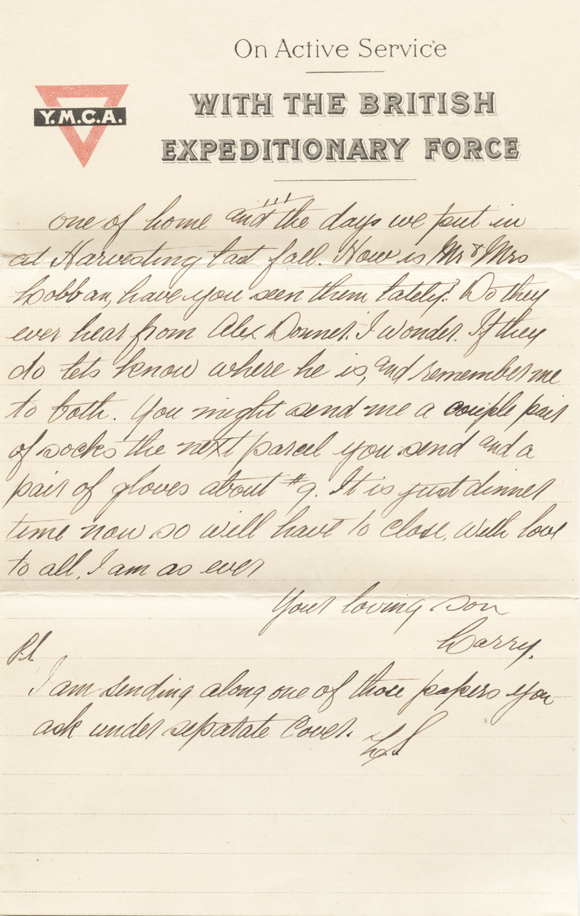 On Active Service
WITH THE BRITISH
Y.M.C.A.
EXPEDITIONARY FORCE
one of home and the days we put in
at Harvesting last fall. How is Mr & Mrs
have you seen them lately. Do they
ever hear from Alex I wonder. If they
do lets know where he is, and remember me
to both. You might send me a couple pair
of socks the next parcel you send and a
pair of gloves about #9. It is just dinner
time now so will have to close, with love
to all, I am as ever
Your loving son
Larry.
P.S.
I am sending along one of those papers you
ask under separate cover.